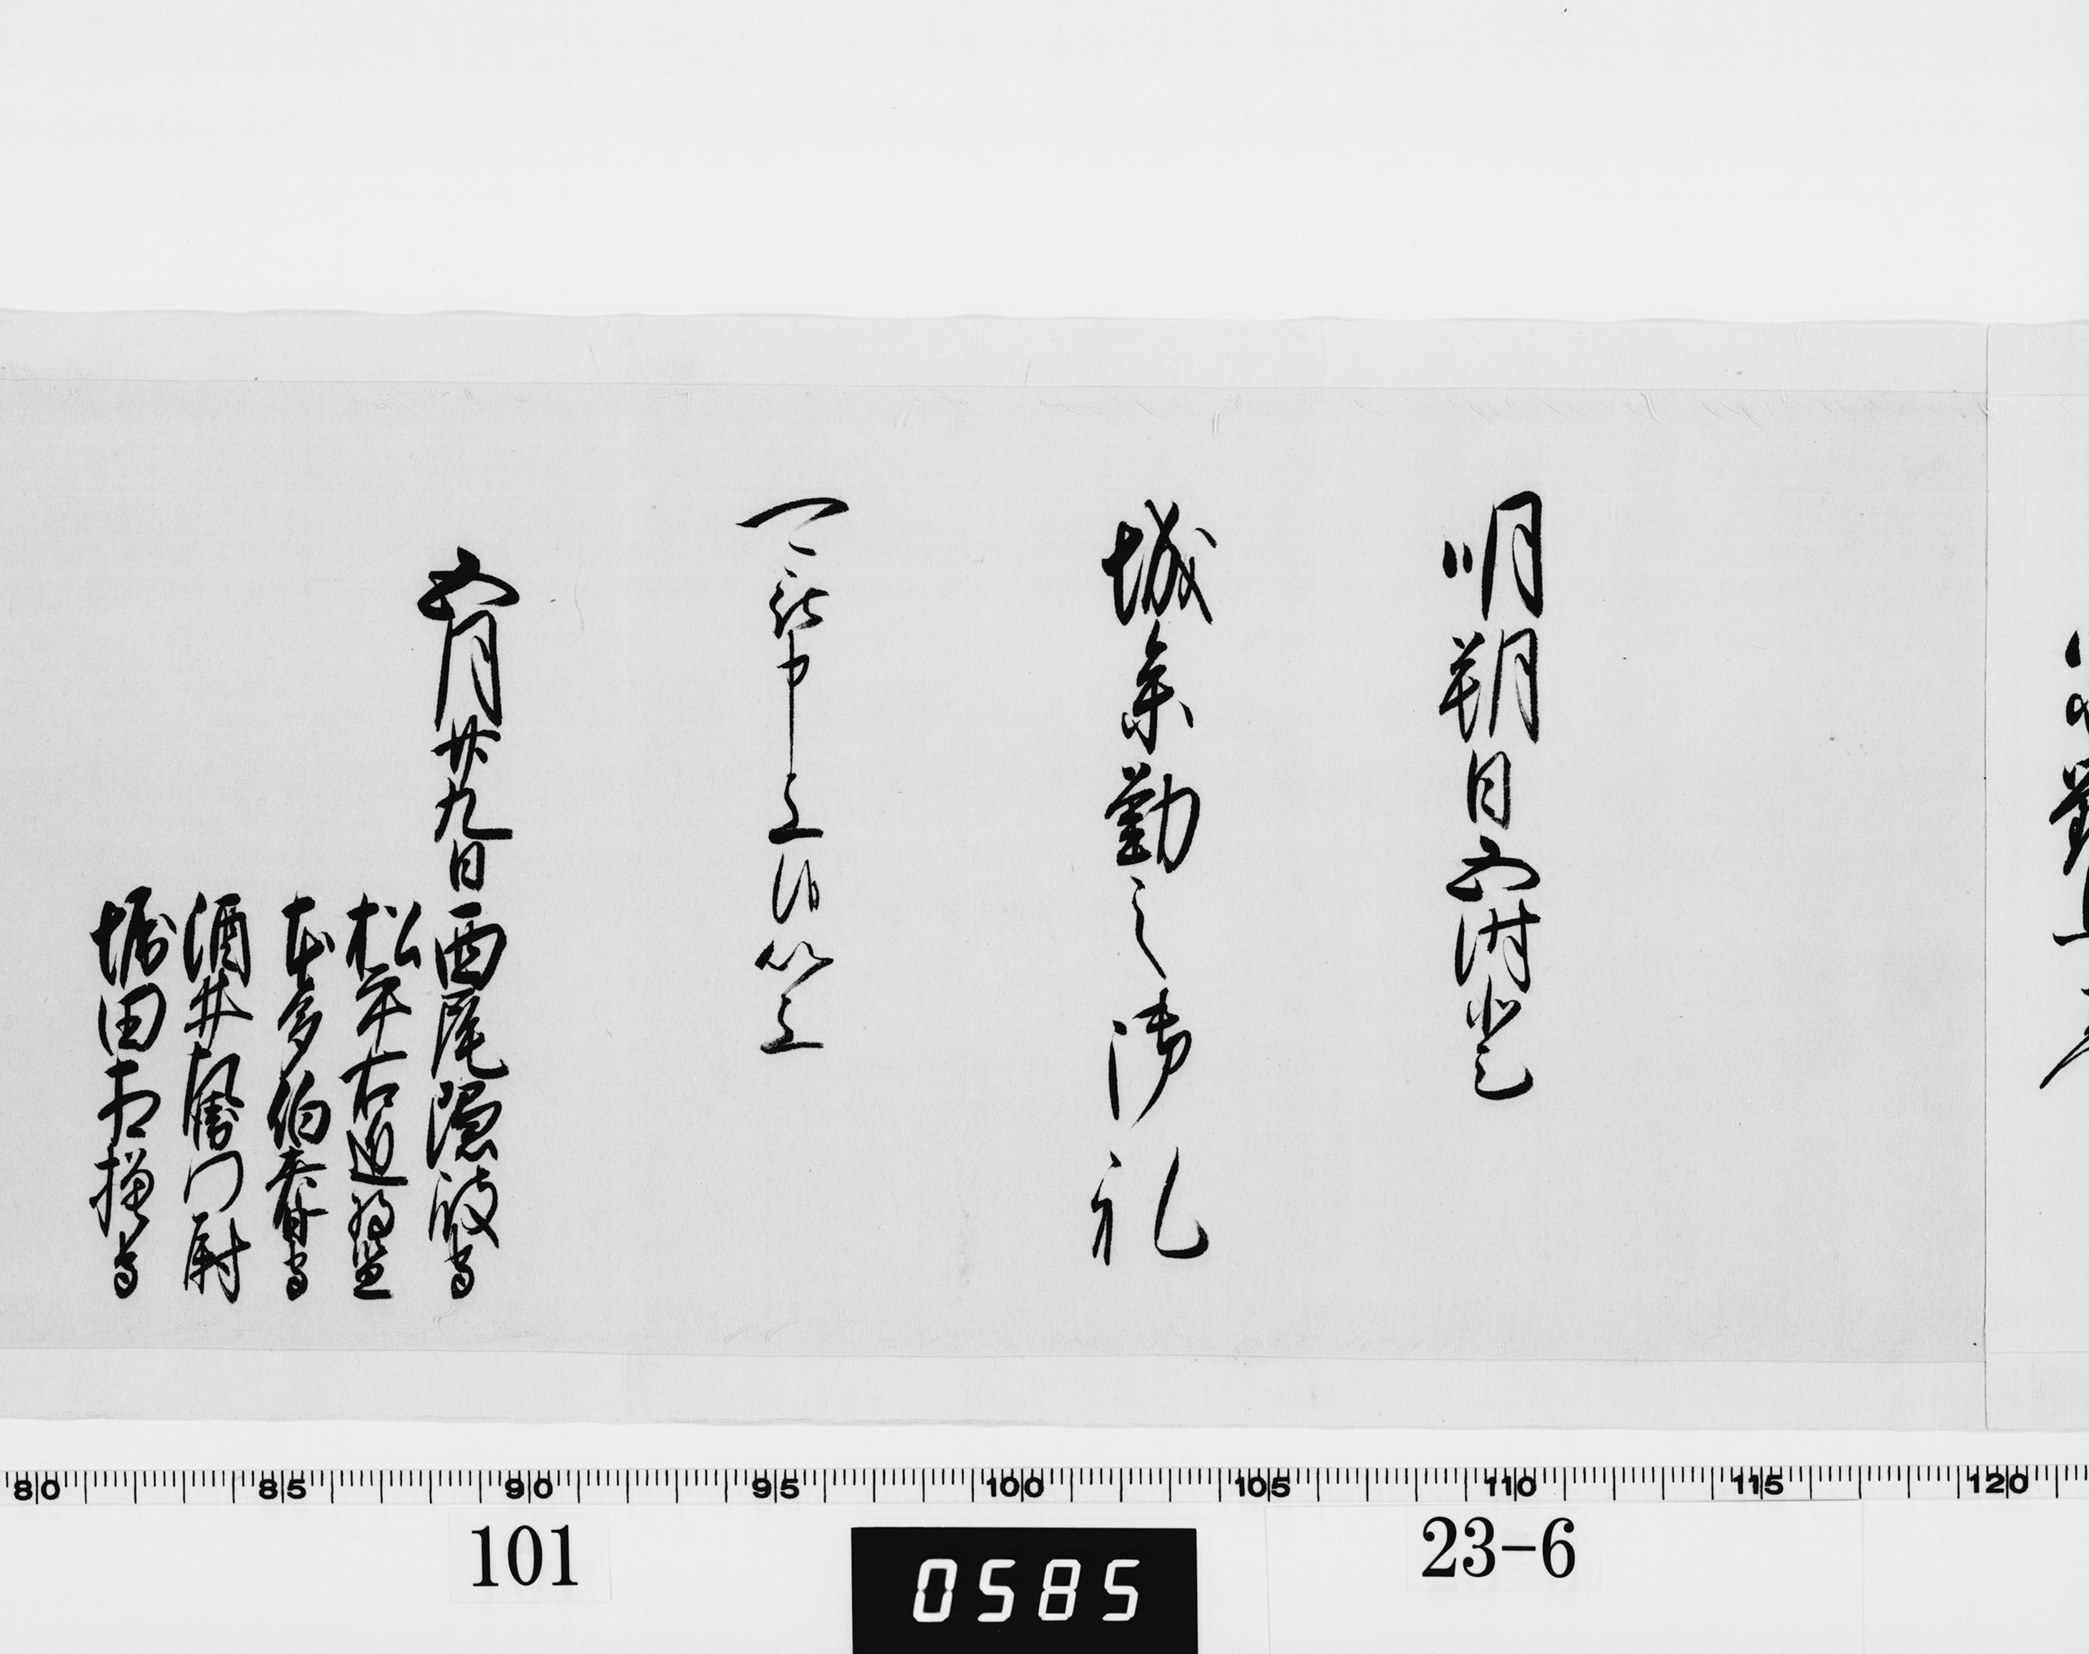 明朔日五時登
城参勤之御礼
可被申上候以上
五月廿九日 西尾隠岐守
松平右近将監
本多伯耆守
酒井左衛門尉
堀田相模守
80 85 90 95 100 105 110 115 120
101
0585
23-6